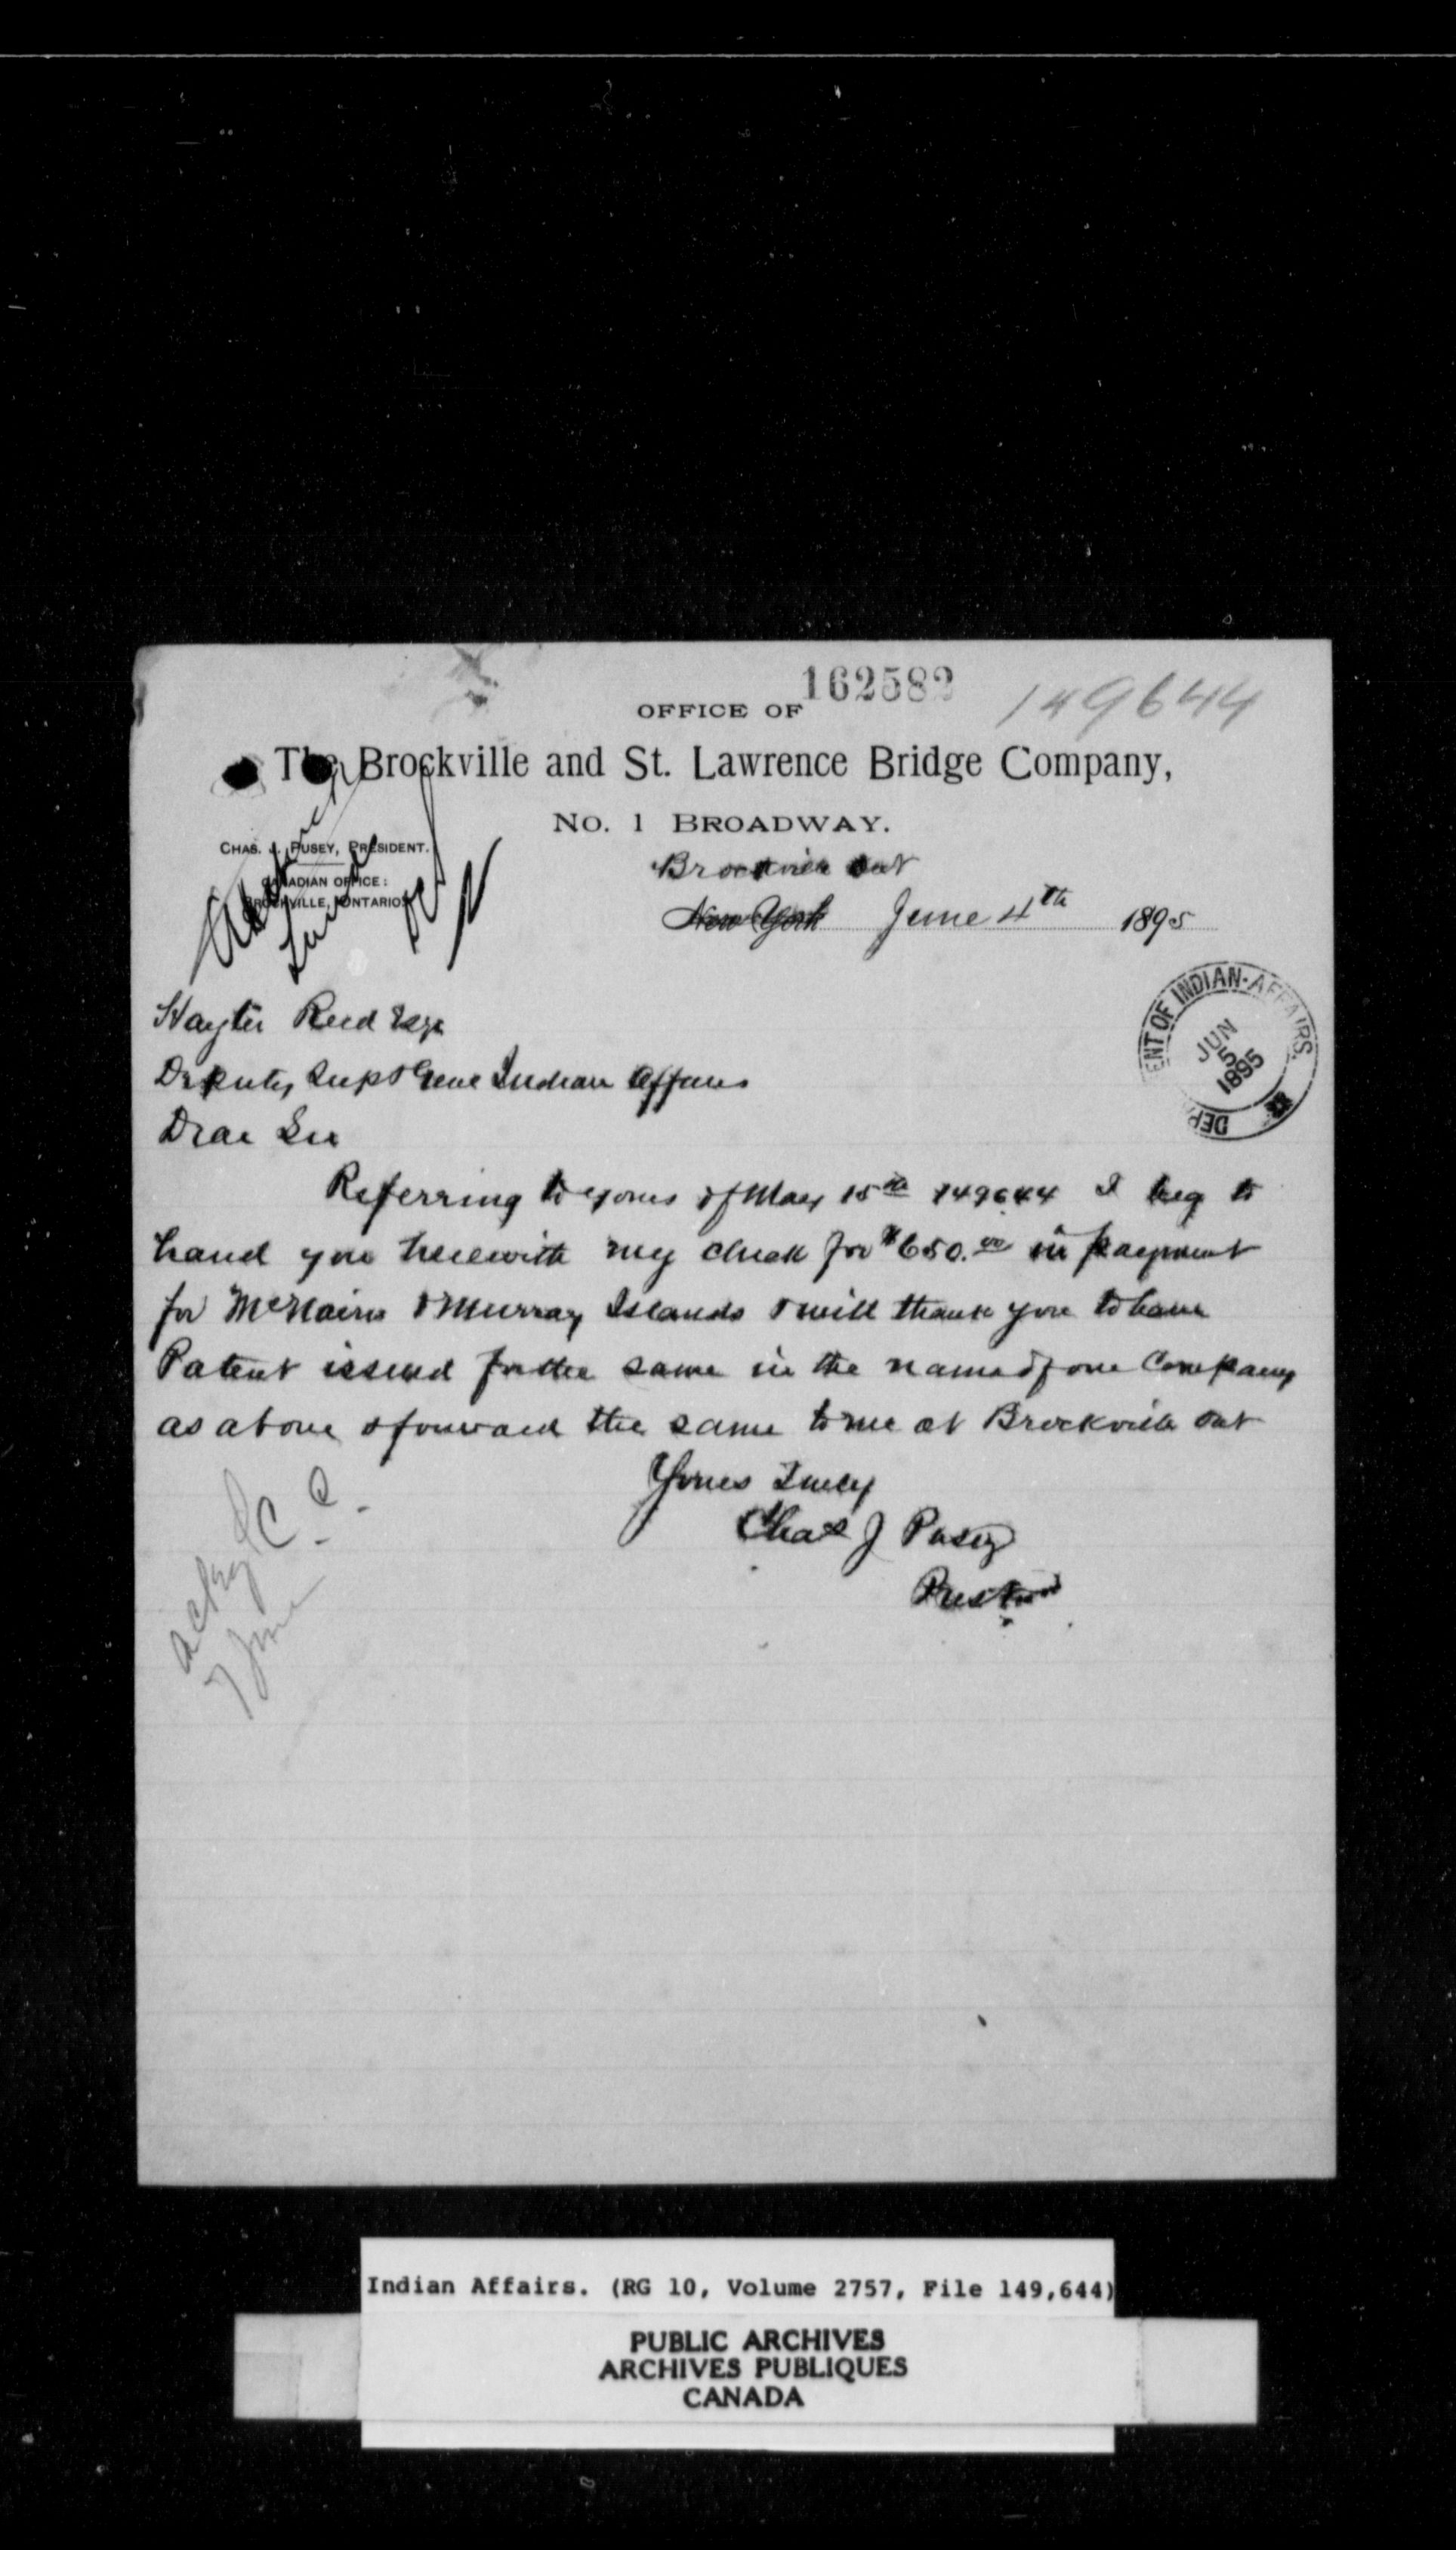 162582
149644
OFFICE OF
The Brockville and St. Lawrence Bridge Company,
No. 1 BROADWAY.
CHAS. J. PUSEY, PRESIDENT.
CANADIAN OFFICE:
BROCKVILLE, ONTARIO.
Brockville Ont
New York June 4th 1895
DEPARTMENT OF INDIAN-AFFAIRS.
JUN
5
1895
Hayter Reed Esqr
Deputy Supt Genl Indian Affairs
Dear Sir
Referring to yours of May 15th 149644 I beg to
hand you herewith my check for $650.00 in payment
for McNairs & Murray Islands & will thank you to have
Patent issued for the same in the name of our Company
as above & forward the same to me at Brockville Ont
Yours Truly
Chas J Pusey
President
ackg
7 June
Indian Affairs. (RG 10, Volume 2757, File 149,644)
PUBLIC ARCHIVES
ARCHIVES PUBLIQUES
CANADA